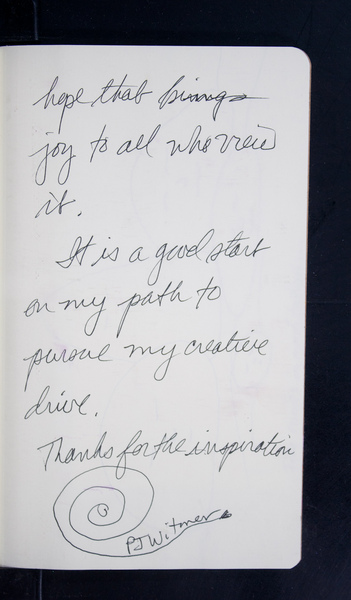 hope that brings
joy to all who view
it.
It is a good start
on my path to
pursue my creative
drive.
Thanks for the inspiration
PJ Witmer